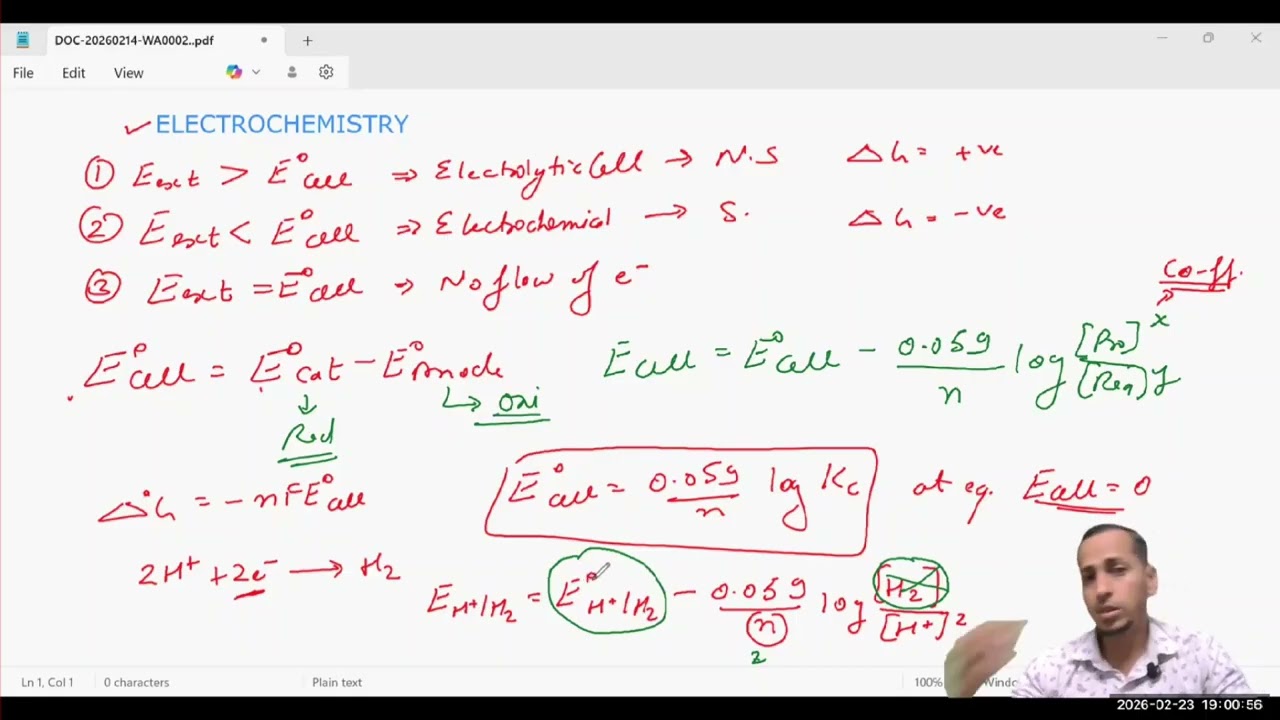 DOC-20260214-WA0002..pdf
File Edit View
✓ ELECTROCHEMISTRY
① Eext > E°cell ⇒ Electrolytic Cell → N.S ΔG = +ve
② Eext < E°cell ⇒ Electrochemical → S. ΔG = -ve
③ Eext = E°cell → No flow of e⁻
Co-eff.
E°cell = E°cat - E°Anode
Ecell = E°cell - 0.059/n log [Pro]^x/[Rea]^y
Red
Oxi
ΔG° = -nFE°cell
E°cell = 0.059/n log Kc at eq. Ecell = 0
2H⁺ + 2e⁻ → H₂
E H⁺/H₂ = E° H⁺/H₂ - 0.059/n log [H₂]/[H⁺]²
2
Ln 1, Col 1 0 characters Plain text 100% Windo
2026-02-23 19:00:56